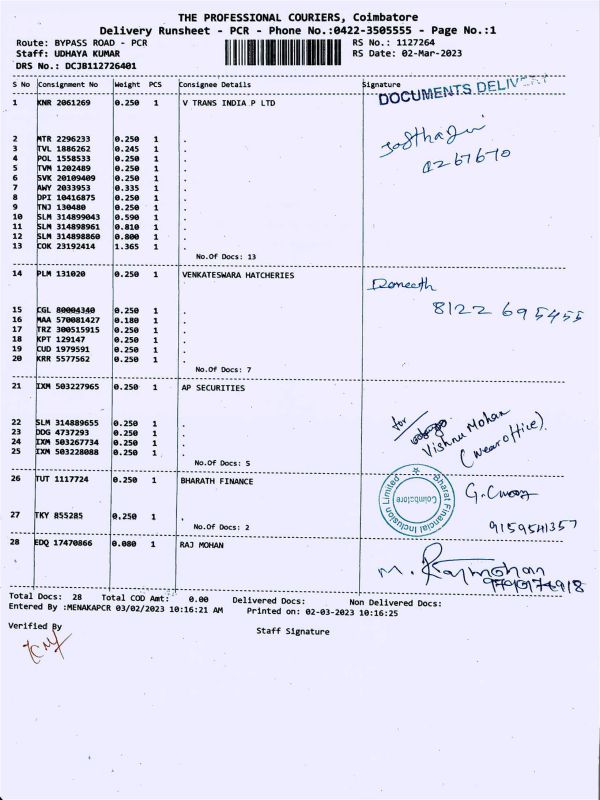 THE PROFESSIONAL COURIERS, Coimbatore
Delivery Runsheet - PCR - Phone No.:0422-3505555 - Page No.:1
Route: BYPASS ROAD - PCR RS No.: 1127264
Staff: UDHAYA KUMAR RS Date: 02-Mar-2023
DRS No.: DCJB112726401
S No Consignment No Weight PCS Consignee Details Signature
DOCUMENTS DELIVERY
1 KNR 2061269 0.250 1 V TRANS INDIA P LTD
2 MTR 2296233 0.250 1 .
3 TVL 1886262 0.245 1 .
4 POL 1558533 0.250 1 .
5 TVM 1202489 0.250 1 .
6 SVK 20109409 0.250 1 .
7 AWY 2033953 0.335 1 .
8 DPI 10416875 0.250 1 .
9 TNJ 130480 0.250 1 .
10 SLM 314899043 0.590 1 .
11 SLM 314898961 0.810 1 .
12 SLM 314898860 0.800 1 .
13 COK 23192414 1.365 1 .
No.Of Docs: 13
14 PLM 131020 0.250 1 VENKATESWARA HATCHERIES
8122 695455
15 CGL 80004340 0.250 1 .
16 MAA 570081427 0.180 1 .
17 TRZ 300515915 0.250 1 .
18 KPT 129147 0.250 1 .
19 CUD 1979591 0.250 1 .
20 KRR 5577562 0.250 1 .
No.Of Docs: 7
21 IXM 503227965 0.250 1 AP SECURITIES
for
Vishnu Mohan
(near office).
22 SLM 314889655 0.250 1 .
23 DDG 4737293 0.250 1 .
24 IXM 503267734 0.250 1 .
25 IXM 503228088 0.250 1 .
No.Of Docs: 5
26 TUT 1117724 0.250 1 BHARATH FINANCE
Bharat Financial Inclusion Limited
Coimbatore
27 TKY 855285 0.250 1 .
9159541357
No.Of Docs: 2
28 EDQ 17470866 0.080 1 RAJ MOHAN
M. Rajmohan
Total Docs: 28 Total COD Amt: 0.00 Delivered Docs: Non Delivered Docs:
Entered By :MENAKAPCR 03/02/2023 10:16:21 AM Printed on: 02-03-2023 10:16:25
Verified By
Staff Signature